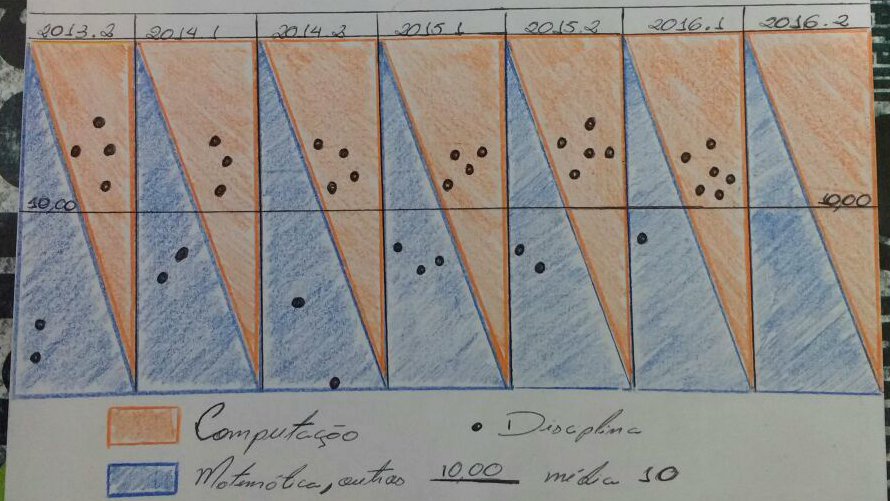 2013.2 2014.1 2014.2 2015.1 2015.2 2016.1 2016.2
10,00 10,00
Computação Disciplina
Matemática, outras 10,00 média 10